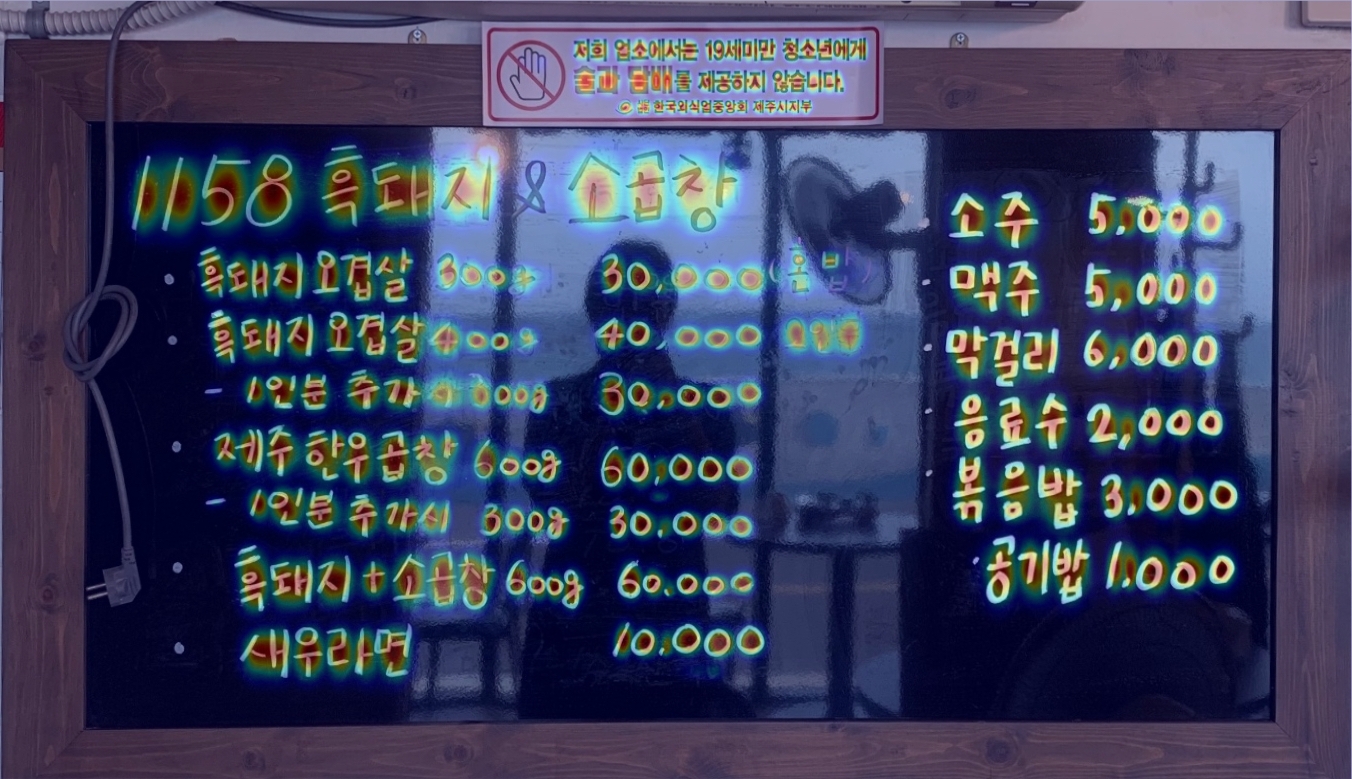 저희 업소에서는 19세미만 청소년에게
술과 담배를 제공하지 않습니다.
한국외식업중앙회 제주시지부
1158 흑돼지 & 소곱창
흑돼지 오겹살 300g 30,000 (혼밥)
흑돼지 오겹살 400g 40,000
- 1인분 추가시 300g 30,000
제주한우곱창 600g 60,000
- 1인분 추가시 300g 30.000
흑돼지+소곱창 600g 60.000
새우라면 10,000
소주 5,000
맥주 5,000
막걸리 6,000
음료수 2,000
볶음밥 3,000
공기밥 1,000